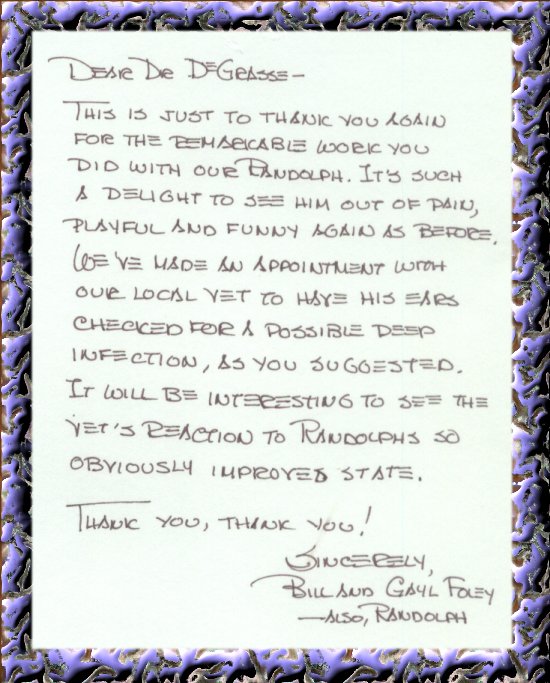 Dear Dr DeGrasse-
This is just to thank you again
for the remarkable work you
did with our Randolph. It's such
a delight to see him out of pain,
playful and funny again as before.
We've made an appointment with
our local vet to have his ears
checked for a possible deep
infection, as you suggested.
It will be interesting to see the
vet's reaction to Randolphs so
obviously improved state.
Thank you, thank you!
Sincerely,
Bill and Gayl Foley
-also, Randolph